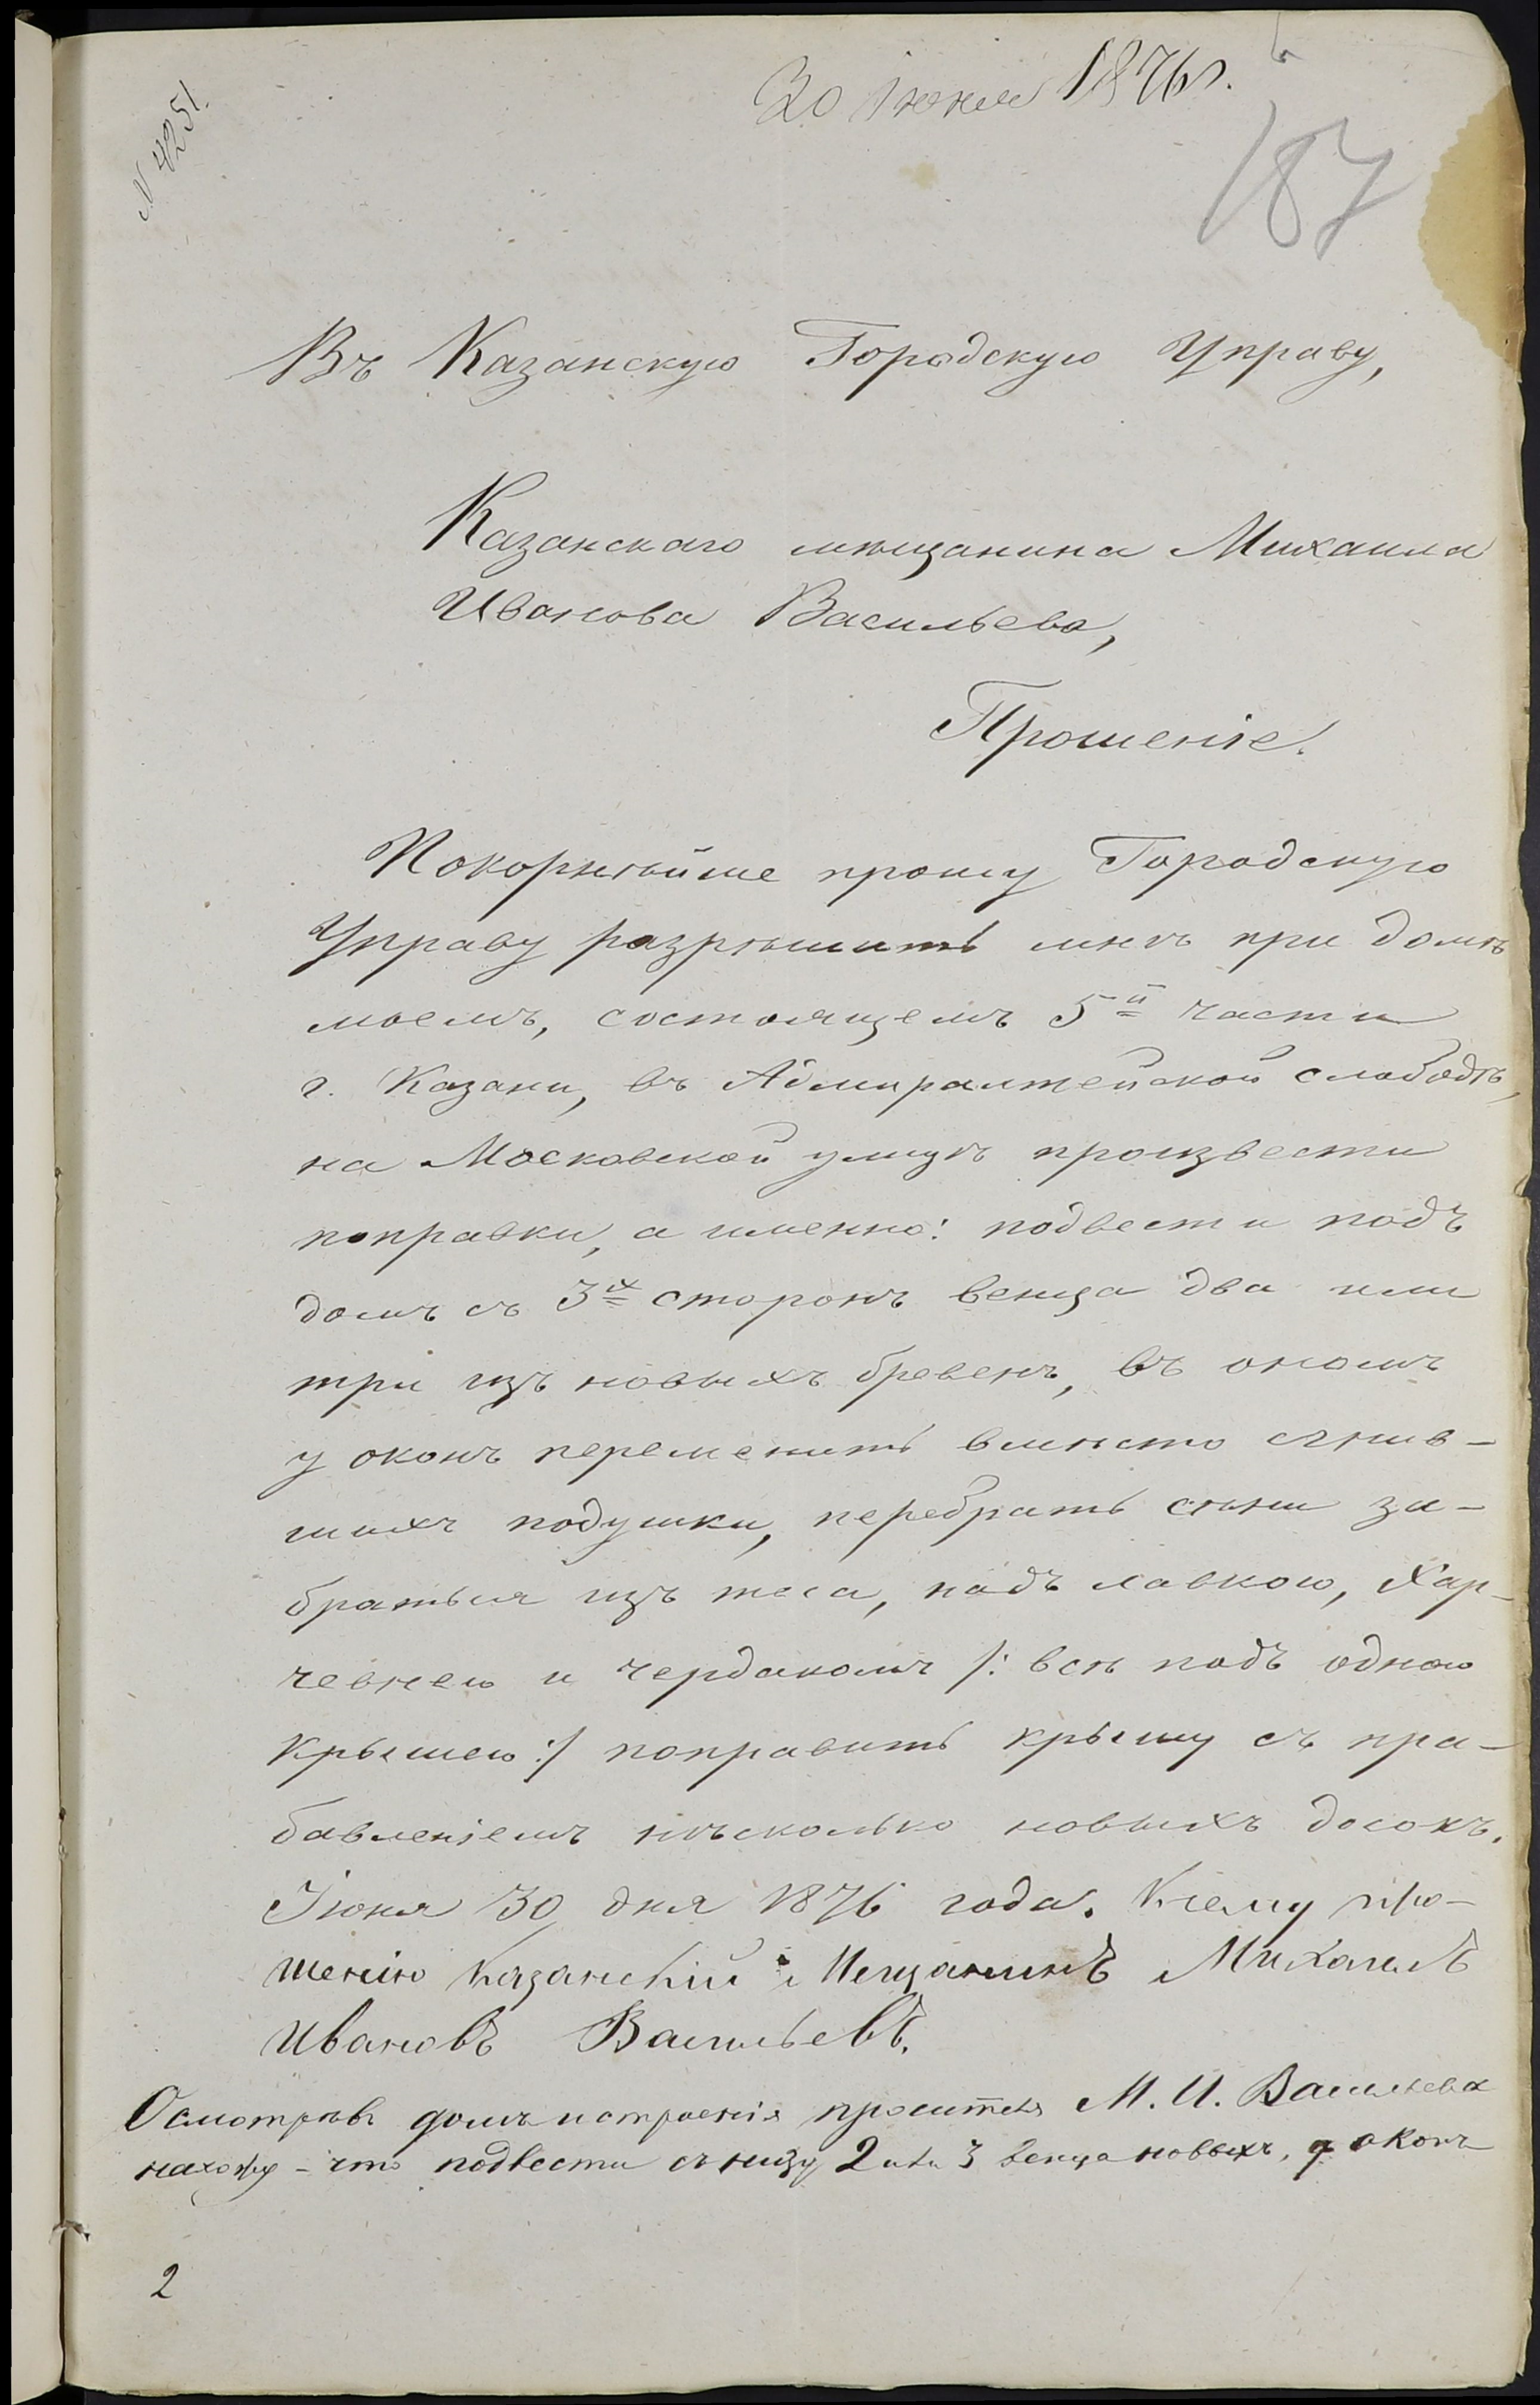 30 Іюня 1876 г.
N 4251.
187
Въ Казанскую Городскую Управу,
Казанскаго мѣщанина Михаила
Иванова Васильева,
Прошеніе.
Покорнѣйше прошу Городскую
Управу разрѣшить мнѣ при домѣ
моемъ, состоящемъ 5й части
г. Казани, въ Адмиралтейской слободѣ,
на Московской улицѣ произвести
поправки, а именно: подвести подъ
домъ съ 3х сторонъ венца два или
три изъ новыхъ бревенъ, въ ономъ
у оконъ переменить вместо сгнив-
шихъ подушки, перебрать сѣни за-
браться изъ теса, надъ лавкою, Хар-
чевнею и чердакомъ /: всѣ подъ одною
крышею :/ поправить крышу съ при-
бавленіемъ нѣсколько новыхъ досокъ.
Іюня 30 дня 1876 года. К сему про-
шенію казанскій Мещанинъ Михаилъ
Ивановъ Васильевъ.
Осмотрѣвъ домъ и строенія просителя М. И. Васильева
нахожу - что подвести снизу 2 или 3 венца новыхъ, у оконъ
2